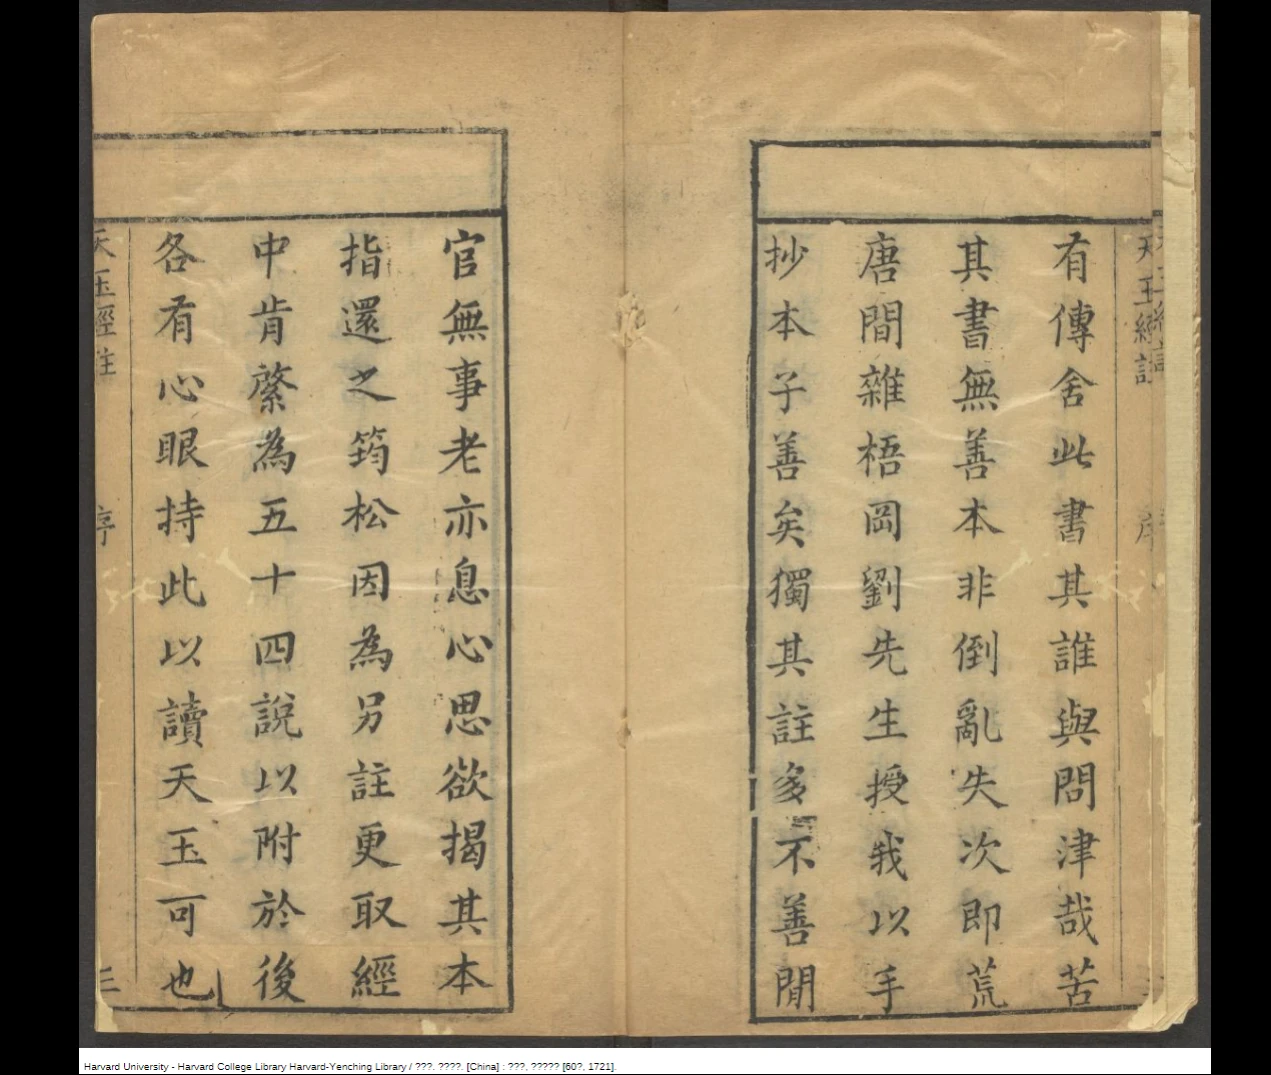 有傳舍此書其誰與問津哉苦
其書無善本非倒亂失次即荒
唐間雜梧岡劉先生授我以手
抄本子善矣獨其註多不善閒
官無事老亦息心思欲揭其本
指還之筠松因為另註更取經
中肯綮為五十四說以附於後
各有心眼持此以讀天玉可也
天玉經註
序
三
Harvard University - Harvard College Library Harvard-Yenching Library / ???. ????. [China] : ???, ????? [60?, 1721].